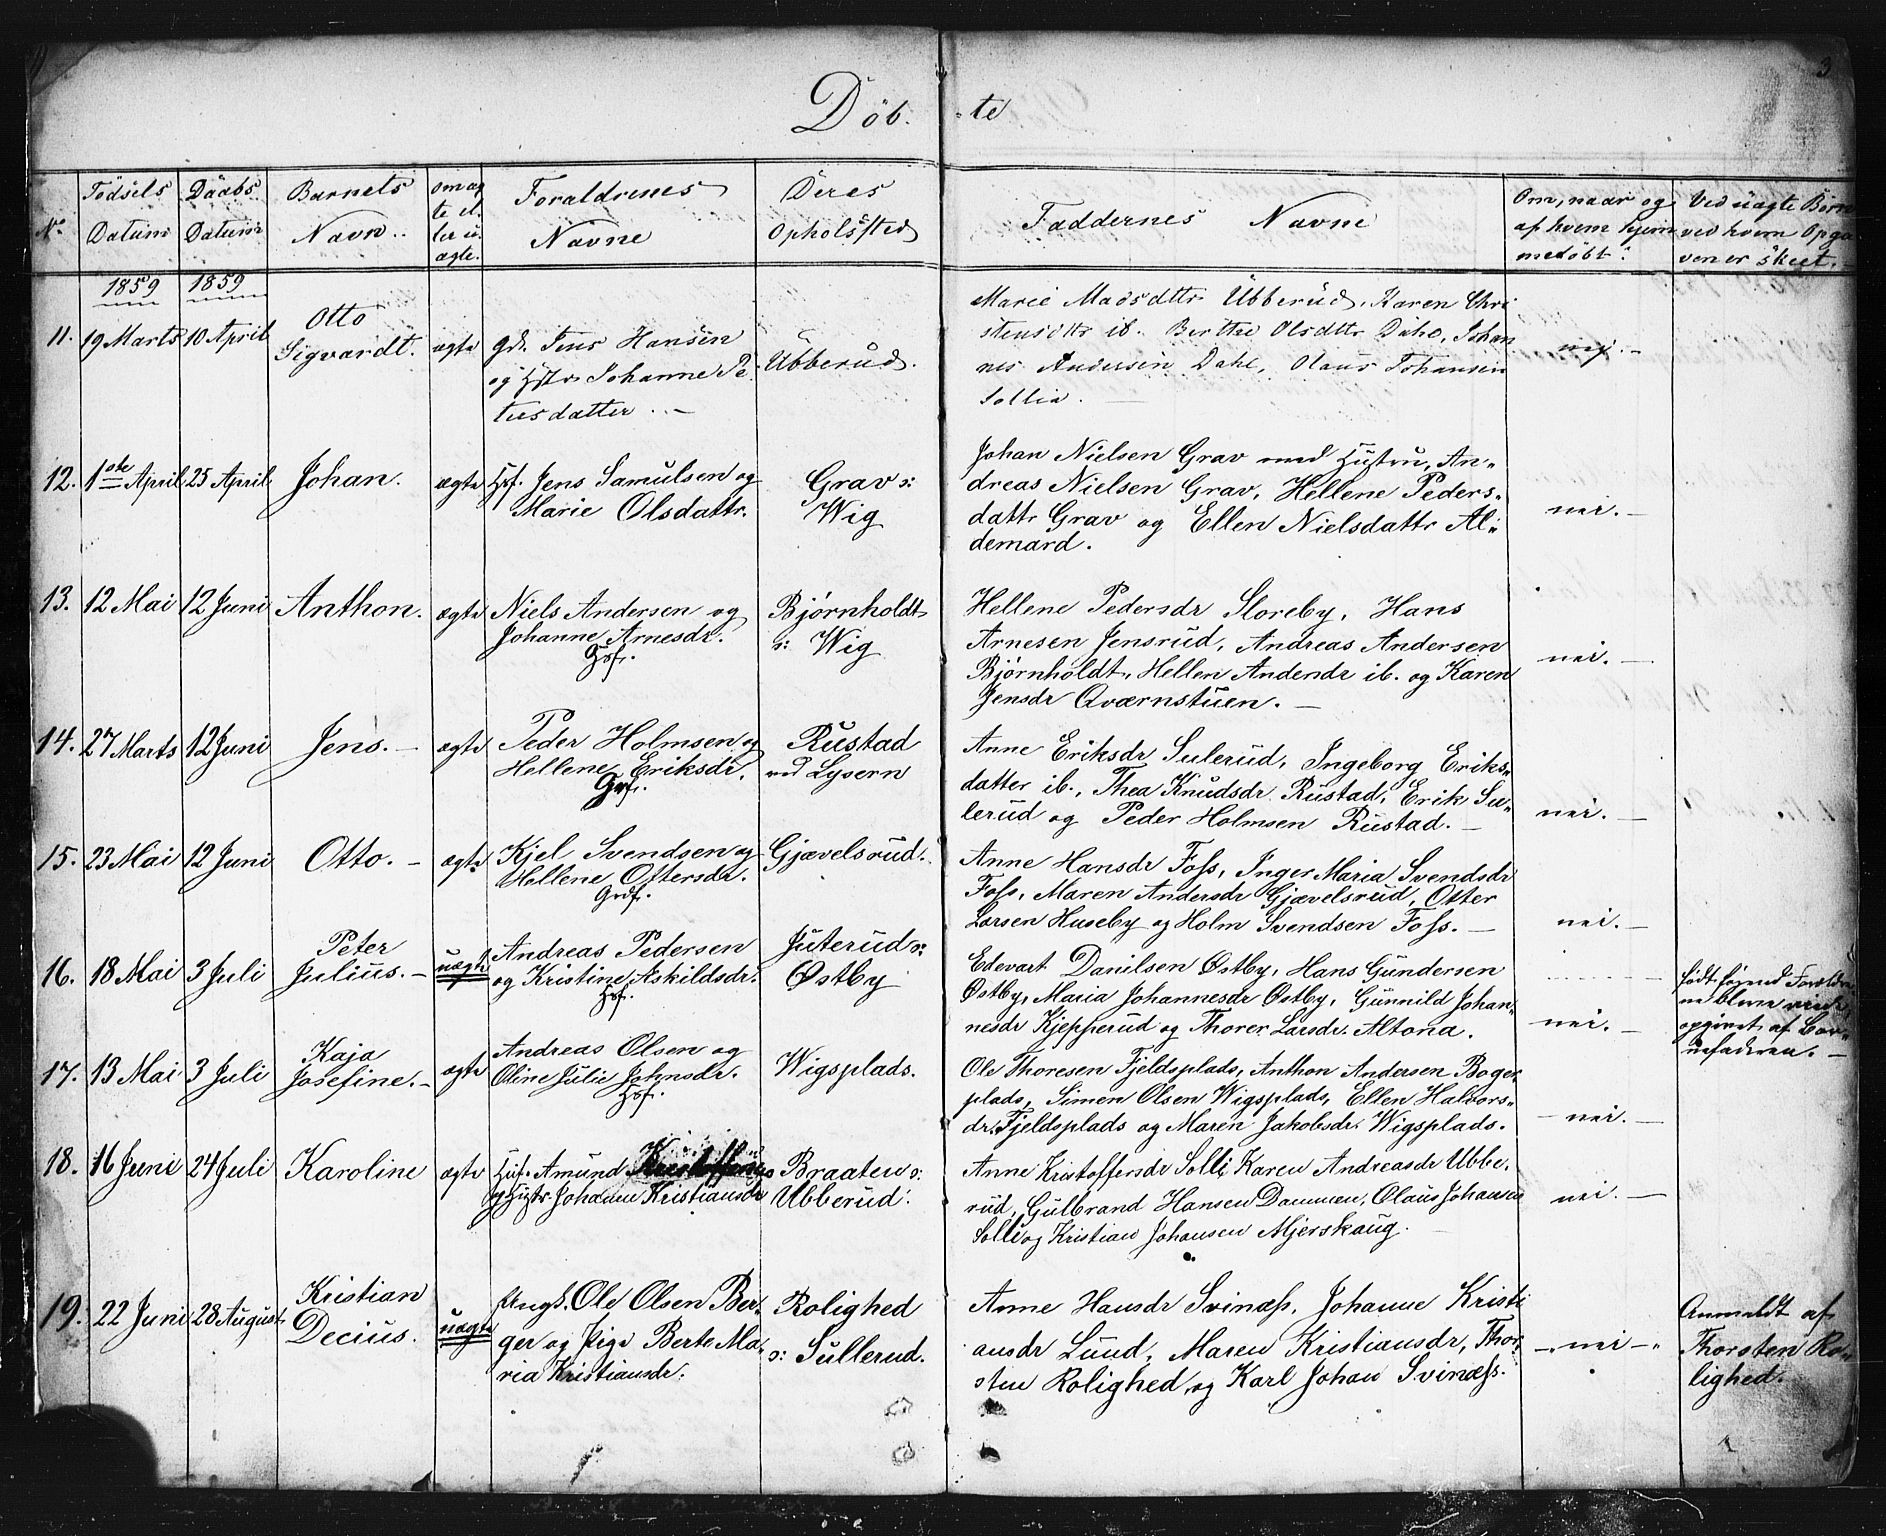 3
Døb- -te
No
Födsels Datum
Daabs Datum
Barnets Navn.
Om ægte el. ler u- ægte.
Foraldrenes Navne
Deres Opholdsted
Faddernes Navne
Om, naar og af hvem hjem medøbt.
Ved uagte Børn ved hvem Opga ven er skeet.
1859
1859
11. 19 Marts 10 April
Otto
Sigvardt.
ægte
gdr. Jens Hansen
og Hstr Johanne Pe
tersdatter. -
Ubberud.
Marie Madsdttr Ubberud, Karen Chri
stensdttr ib. Berthe Olsdttr Dahl, Johan
nes Andersen Dahl, Olaus Johansen
Sollia.
nej. -
12. 1ste April 25 April
Johan.
ægte
Hsf. Jens Samulsen og
Marie Olsdattr.
Grav s:
Wig
Johan Nielsen Grav med Hustru, An-
dreas Nielsen Grav, Hellene Peders-
dattr Grav og Ellen Nielsdattr Al-
demard.
nei. -
13. 12 Mai 12 Juni
Anthon.
ægte
Niels Andersen og
Johanne Arnesdr.
Gsf.
Bjørnholdt
s: Wig
Hellene Pedersdr Storeby, Hans
Arnesen Jensrud, Andreas Andersen
Bjørnholdt, Hellen Andendr ib. og Karen
Jensdr Qværnstuen. -
nei. -
14. 27 Marts 12 Juni
Jens. -
ægte
Peder Holmsen og
Hellene Eriksdr.
Grf.
Rustad
ved Lysern
Anne Eriksdr Sulerud, Ingeborg Eriks-
datter ib., Thea Knudsdr Rustad, Erik Su-
lerud og Peder Holmsen Rustad. -
nei. -
15. 23 Mai 12 Juni
Otto. -
ægte
Kjel Svendsen og
Hellene Ottersdr.
Grdf.
Gjævelsrud.
Anne Hansdr Foss, Inger Maria Svendsdr
Foss, Maren Andersdr Gjævelsrud, Otter
Larsen Huseby og Holm Svendsen Foss. -
nei. -
16. 18 Mai 3 Juli
Peter
Julius. -
uægte
Andreas Pedersen
og Kristine Askildsdr.
Hsf.
Juterud s:
Østby
Edevart Danilsen Østby, Hans Gundersen
Østby, Maria Johannesdr Østby, Gunnild Johan-
nesdr Kjepperud og Thorer Larsdr. Altona.
nei. -
født førend Foreldre
ne bleve viede,
opgivet af Bar-
nefaderen. -
17. 13 Mai 3 Juli
Kaja
Josefine. -
ægte
Andreas Olsen og
Oline Julie Johnsdr.
Hsf.
Wigsplads.
Ole Thoresen Fjeldsplads, Anthon Andersen Boger
plads, Simen Olsen Wigsplads, Ellen Halvors-
dr. Fjeldsplads og Maren Jakobsdr. Wigsplads.
- nei. -
18. 16 Juni 24 Juli
Karoline
ægte
Husf. Amund Kristoffersen
og Hustr. Johanne Kristiansdr
Braaten s:
Ubberud.
Anne Kristoffersdr Solli, Karen Andreasdr Ubbe.
rud, Gulbrand Hansen Dammen, Olaus Johansen
Solli og Kristian Johansen Mjerskaug.
nei. -
19. 22 Juni 28 August
Kristian
Decius.
uægte
Ungk. Ole Olsen Ber-
ger og Pige Berte Ma-
ria Kristiansdr.
Rolighed
s: Sullerud.
Anne Hansdr Svinæss, Johanne Kristi
ansdr Lund, Maren Kristiansdr, Thor-
sten Rolighed og Karl Johan Svinæss.
- nei -
Anmeldt af
Thorsten Ro-
lighed.